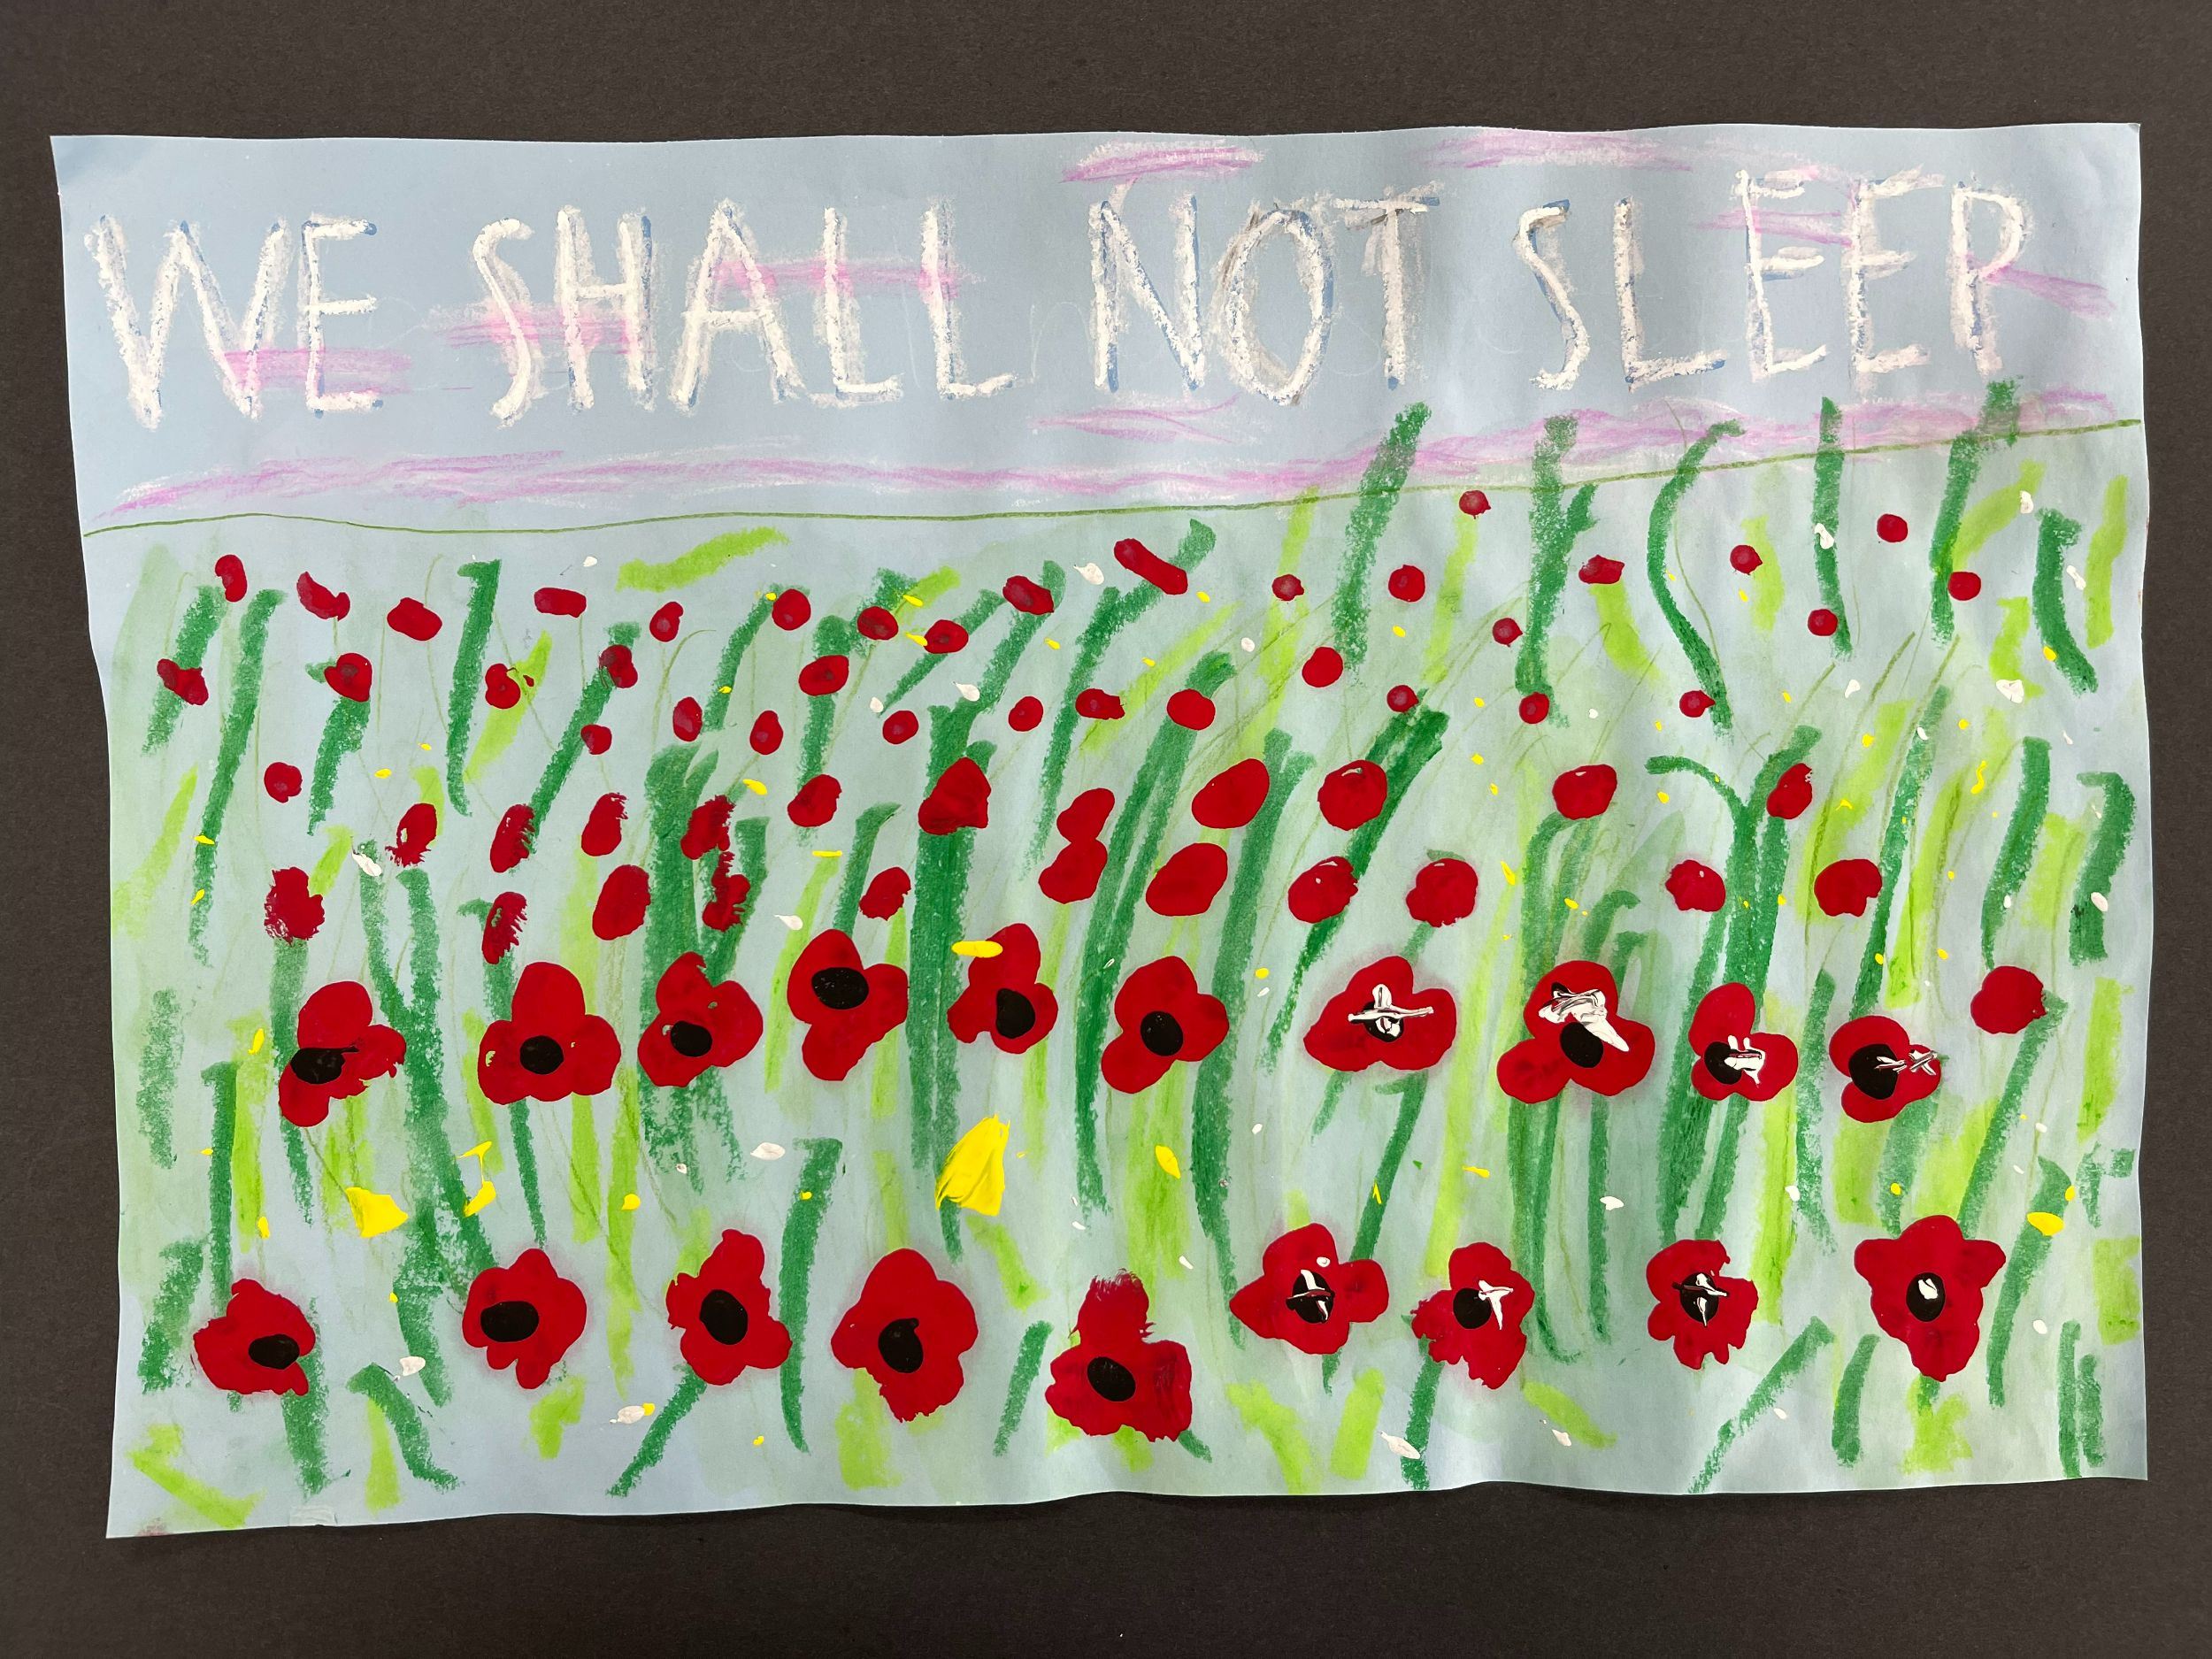 WE SHALL NOT SLEEP